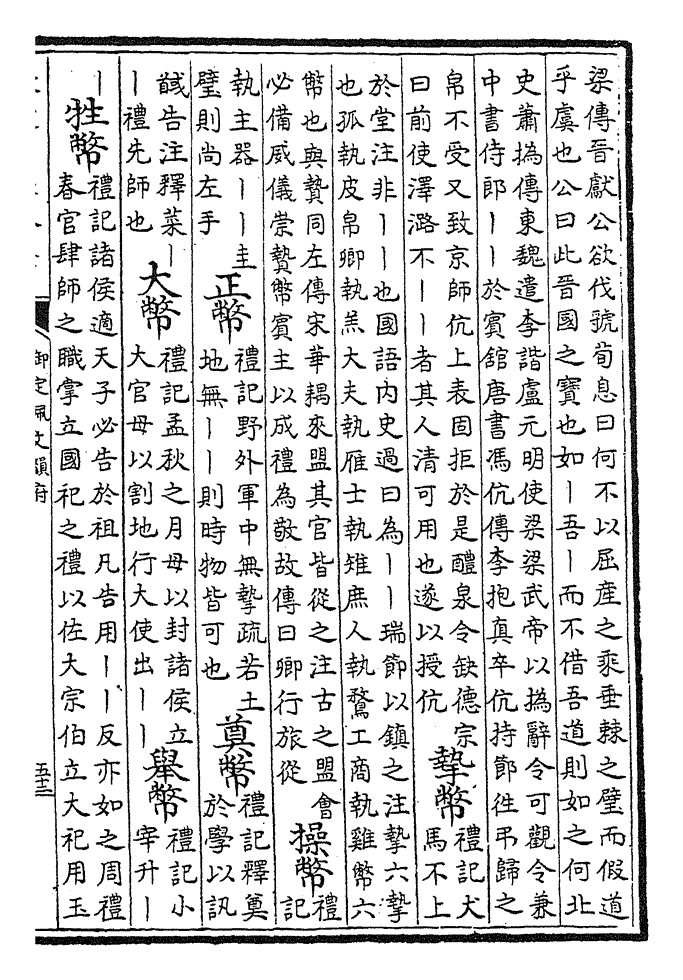 梁傳晉獻公欲伐虢荀息曰何不以屈產之乘垂棘之璧而假道
乎虞也公曰此晉國之寶也如｜吾｜而不借吾道則如之何北
史蕭撝傳東魏遣李諧盧元明使梁梁武帝以撝辭令可觀令兼
中書侍郎｜｜於賓館唐書馮伉傳李抱真卒伉持節徃弔歸之
帛不受又致京師伉上表固拒於是醴泉令缺德宗
曰前使澤潞不｜｜者其人清可用也遂以授伉
摯幣
禮記犬
馬不上
於堂注非｜｜也國語內史過曰為｜｜瑞節以鎮之注摯六摯
也孤執皮帛卿執羔大夫執雁士執雉庶人執鶩工商執雞幣六
幣也與贄同左傳宋華耦來盟其官皆從之注古之盟會
必備威儀崇贄幣賓主以成禮為敬故傳曰卿行旅從
操幣
禮
記
執主器｜｜圭
璧則尚左手
正幣
禮記野外軍中無摯疏若土
地無｜｜則時物皆可也
奠幣
禮記釋奠
於學以訊
馘告注釋菜｜
｜禮先師也
大幣
禮記孟秋之月毋以封諸侯立
大官毋以割地行大使出｜｜
舉幣
禮記小
宰升｜
｜
牲幣
禮記諸侯適天子必告於祖凡告用｜｜反亦如之周禮
春官肆師之職掌立國祀之禮以佐大宗伯立大祀用玉
御定佩文韻府